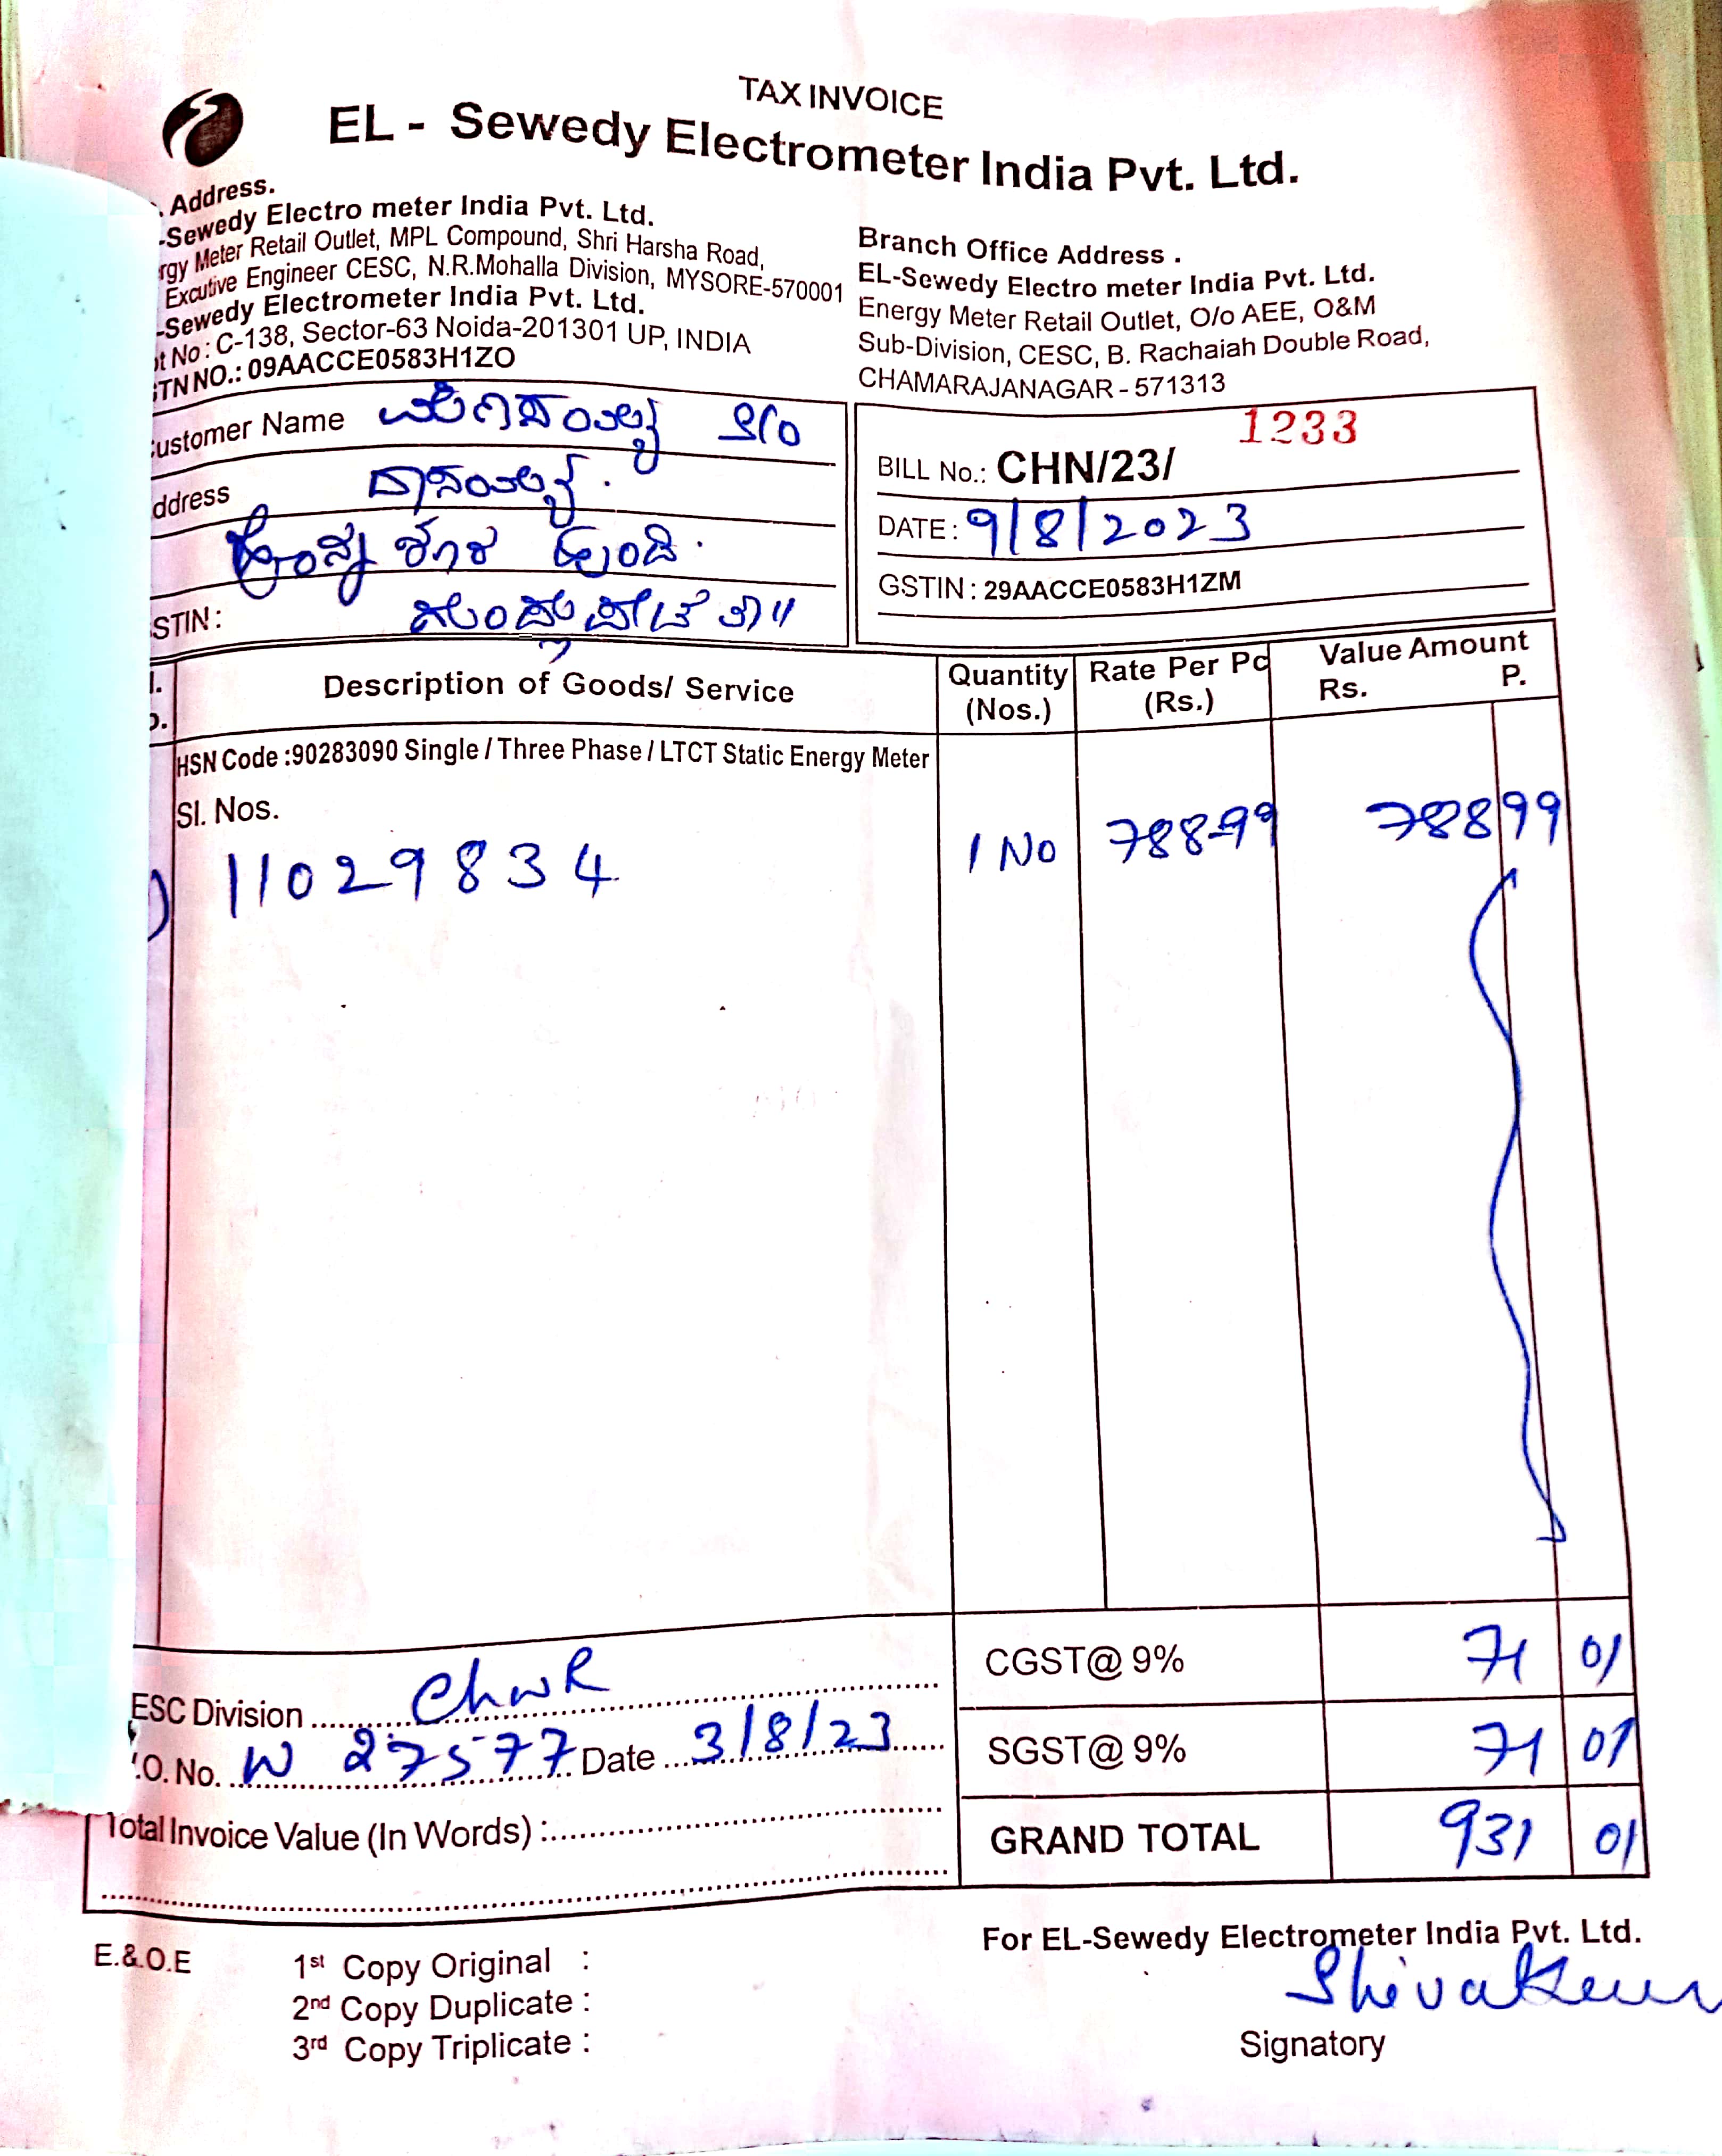 TAX INVOICE
EL - Sewedy Electrometer India Pvt. Ltd.
. Address.
-Sewedy Electro meter India Pvt. Ltd.
rgy Meter Retail Outlet, MPL Compound, Shri Harsha Road,
Excutive Engineer CESC, N.R.Mohalla Division, MYSORE-570001
-Sewedy Electrometer India Pvt. Ltd.
t No : C-138, Sector-63 Noida-201301 UP, INDIA
STN NO.: 09AACCE0583H1ZO
Branch Office Address .
EL-Sewedy Electro meter India Pvt. Ltd.
Energy Meter Retail Outlet, O/o AEE, O&M
Sub-Division, CESC, B. Rachaiah Double Road,
CHAMARAJANAGAR - 571313
ustomer Name S/o
ddress ದಾಸಯ್ಯ .
STIN :
1233
BILL No.: CHN/23/
DATE : 9/8/2023
GSTIN : 29AACCE0583H1ZM
Description of Goods/ Service Quantity (Nos.) Rate Per Pc (Rs.) Value Amount Rs. P.
HSN Code :90283090 Single / Three Phase / LTCT Static Energy Meter
Sl. Nos.
) 11029834 1 No 788-99 788 99
CGST@ 9% 71 01
ESC Division Chnr
SGST@ 9% 71 01
.O. No. W 27577 Date 3/8/23
Total Invoice Value (In Words) :
GRAND TOTAL 931 01
For EL-Sewedy Electrometer India Pvt. Ltd.
E.&.O.E
1st Copy Original :
2nd Copy Duplicate :
3rd Copy Triplicate :
Signatory